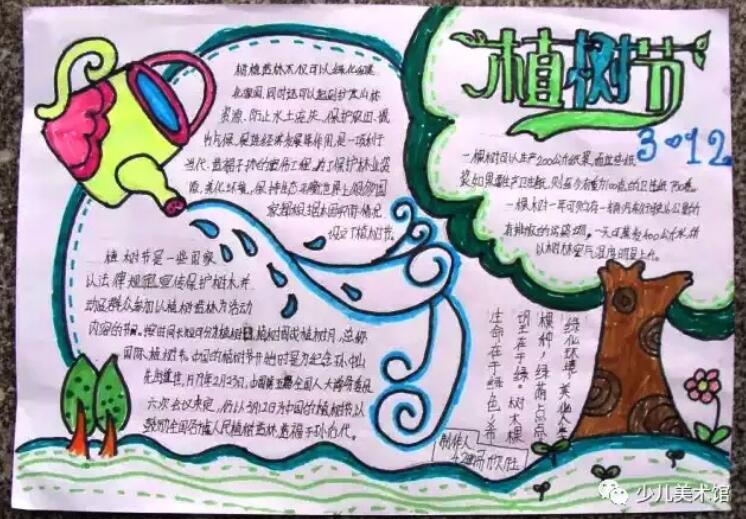 植树节
3·12
植树造林不仅可以绿化和美
化家园,同时还可以起到扩大山林
资源、防止水土流失、保护农田、调
节气候、促进经济发展等作用,是一项利于
当代、造福子孙的宏伟工程。为了保护林业资
源,美化环境,保持生态平衡世界上很多国
家都根据本国实际情况
设立了植树节。
植树节是一些国家
以法律规定宣传保护树木并
动员群众参加以植树造林为活动
内容的节日。按时间长短可分为植树日、植树周或植树月,总称
国际植树节。中国的植树节开始时是为纪念孙中山
先生逝世,1979年2月23日,中国第五届全国人大常务委员
六次会议决定,仍以3月12日为中国的植树节,以
鼓励全国各族人民植树造林,造福子孙后代。
一棵树可以生产200公斤纸浆,而这些纸
750卷。
一棵树一年可以
一天蒸发400公斤水,所
以树林空气湿度明显上升。
绿化环境,美化人生
棵种,绿荫点点
望在于绿。树木棵
生命在于绿色,希
制作人
少儿美术馆